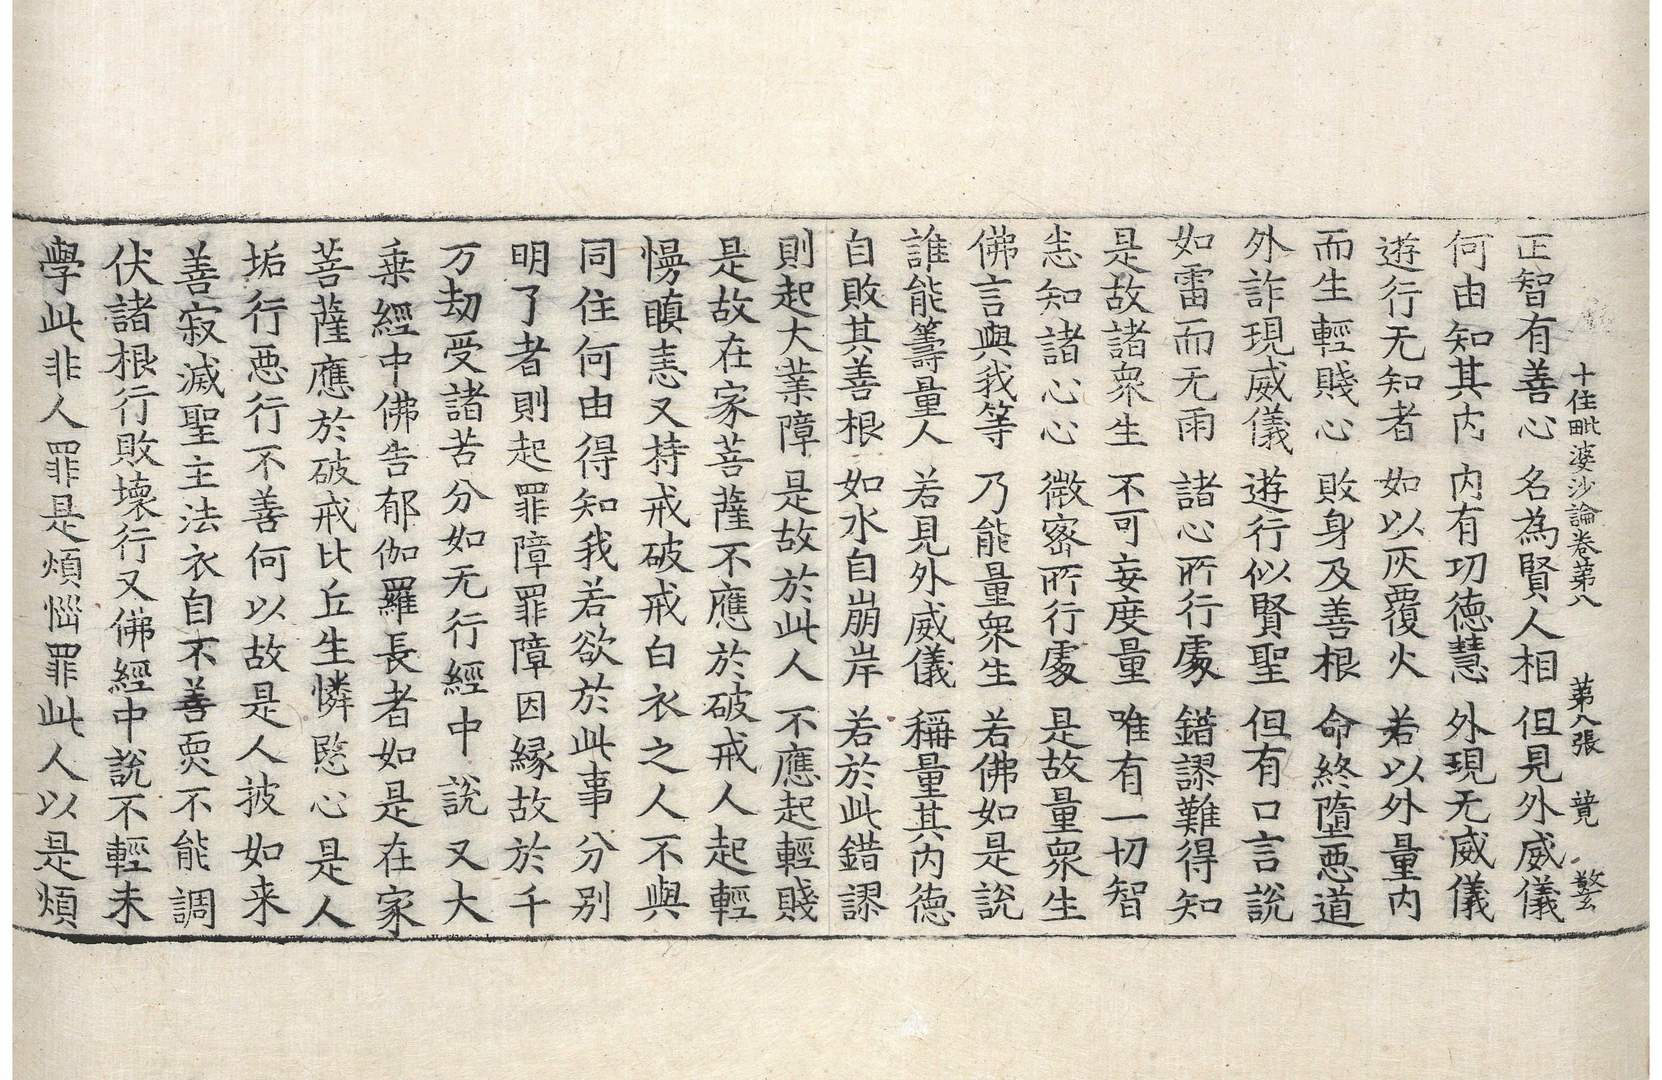 十住毗婆沙論卷第八 第八張 竟
正智有善心 名為賢人相 但見外威儀
何由知其内 内有功德慧 外現无威儀
遊行无知者 如以灰覆火 若以外量内
而生輕賤心 敗身及善根 命終墮惡道
外詐現威儀 遊行似賢聖 但有口言說
如雷而无雨 諸心所行處 錯謬難得知
是故諸衆生 不可妄度量 唯有一切智
悉知諸心心 微密所行處 是故量衆生
佛言與我等 乃能量衆生 若佛如是說
誰能籌量人 若見外威儀 稱量其内德
自敗其善根 如水自崩岸 若於此錯謬
則起大業障 是故於此人 不應起輕賤
是故在家菩薩不應於破戒人起輕
慢瞋恚又持戒破戒白衣之人不與
同住何由得知我若欲於此事分别
明了者則起罪障罪障因縁故於千
万劫受諸苦分如无行經中說又大
乗經中佛告郁伽羅長者如是在家
菩薩應於破戒比丘生憐愍心是人
垢行惡行不善何以故是人披如来
善寂滅聖主法衣自不善㷊不能調
伏諸根行敗壞行又佛經中說不輕未
學此非人罪是煩惱罪此人以是煩